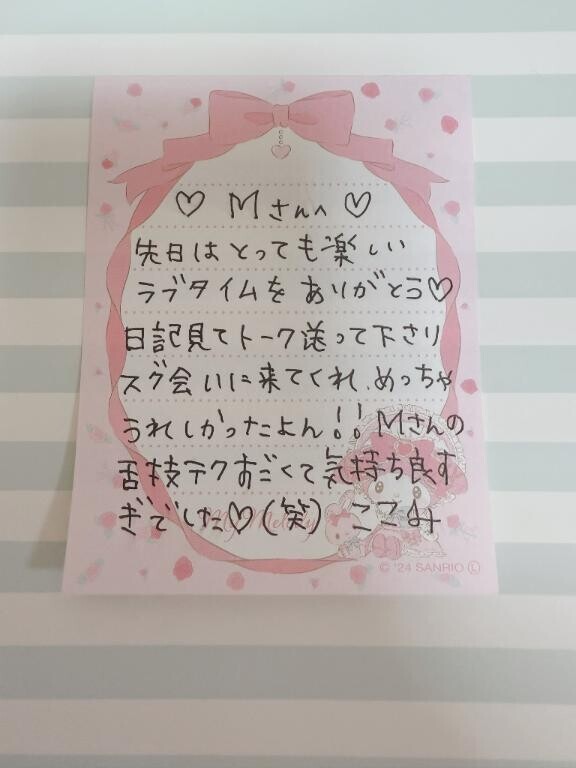 ♡ Mさんへ ♡
先日はとっても楽しい
ラブタイムをありがとう♡
日記見てトーク送って下さり
スグ会いに来てくれ、めっちゃ
うれしかったよん!! Mさんの
舌技テクすごくて気持ち良す
ぎでした♡(笑) ここみ
My Melody
© '24 SANRIO Ⓛ